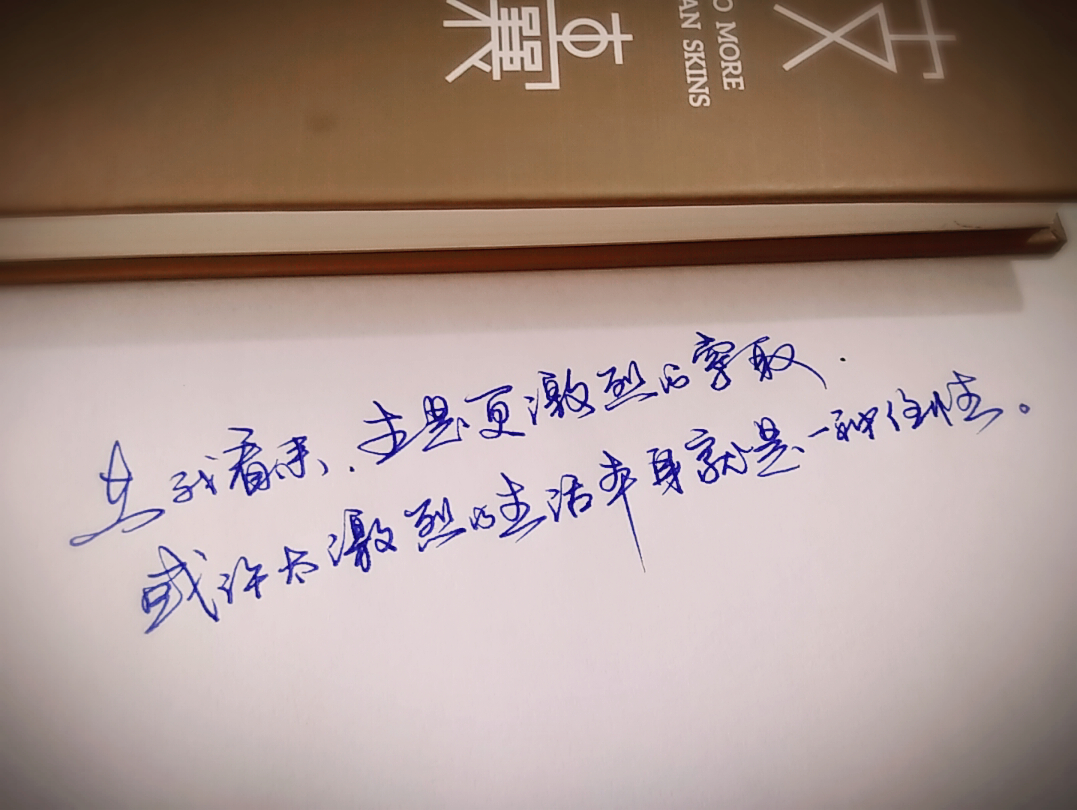 O MORE
AN SKINS
在我看来、是更激烈的取.
或许太激烈的生活本身就是一种任性。